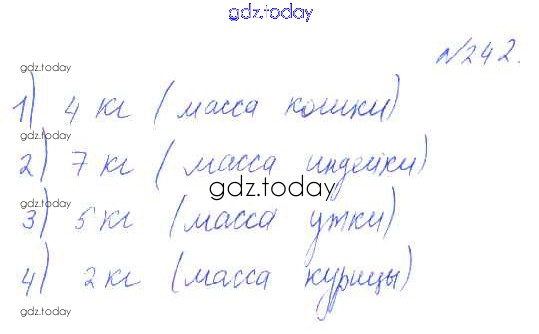 gdz.today
N242.
gdz.today
1) 4 кг (масса кошки)
gdz.today
2) 7 кг (масса индейки)
gdz.today
gdz.today
3) 5 кг (масса утки)
4) 2 кг (масса курицы)
gdz.today